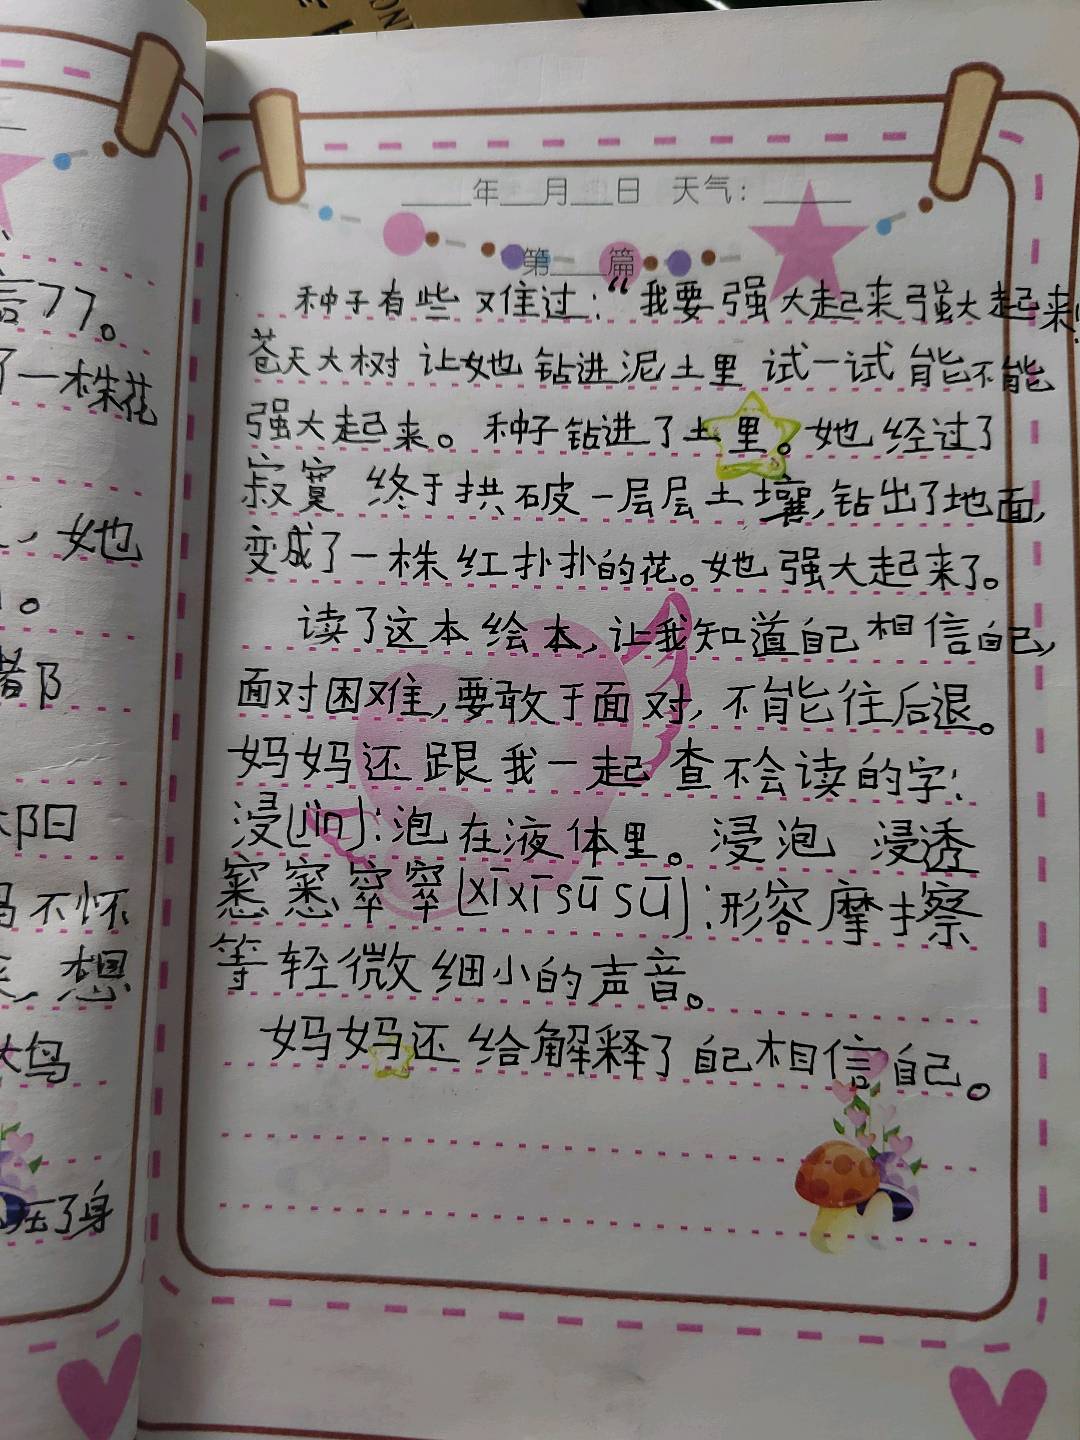 年 月 日 天气：
第 篇
种子有些难过：“我要强大起来强大起来！
苍天大树让她钻进泥土里 试一试能不能
强大起来。种子钻进了土里。她经过了
寂寞 终于拱破一层层土壤，钻出了地面，
变成了一株红扑扑的花。她强大起来了。
读了这本绘本，让我知道自己相信自己，
面对困难，要敢于面对，不能往后退。
妈妈还跟我一起查不会读的字：
浸(jìn)：泡在液体里。浸泡 浸透
窸窸窣窣(xīxīsūsū)：形容摩擦
等轻微细小的声音。
妈妈还给解释了自己相信自己。
了一株花
，她
不怀
，想
鸟
了身